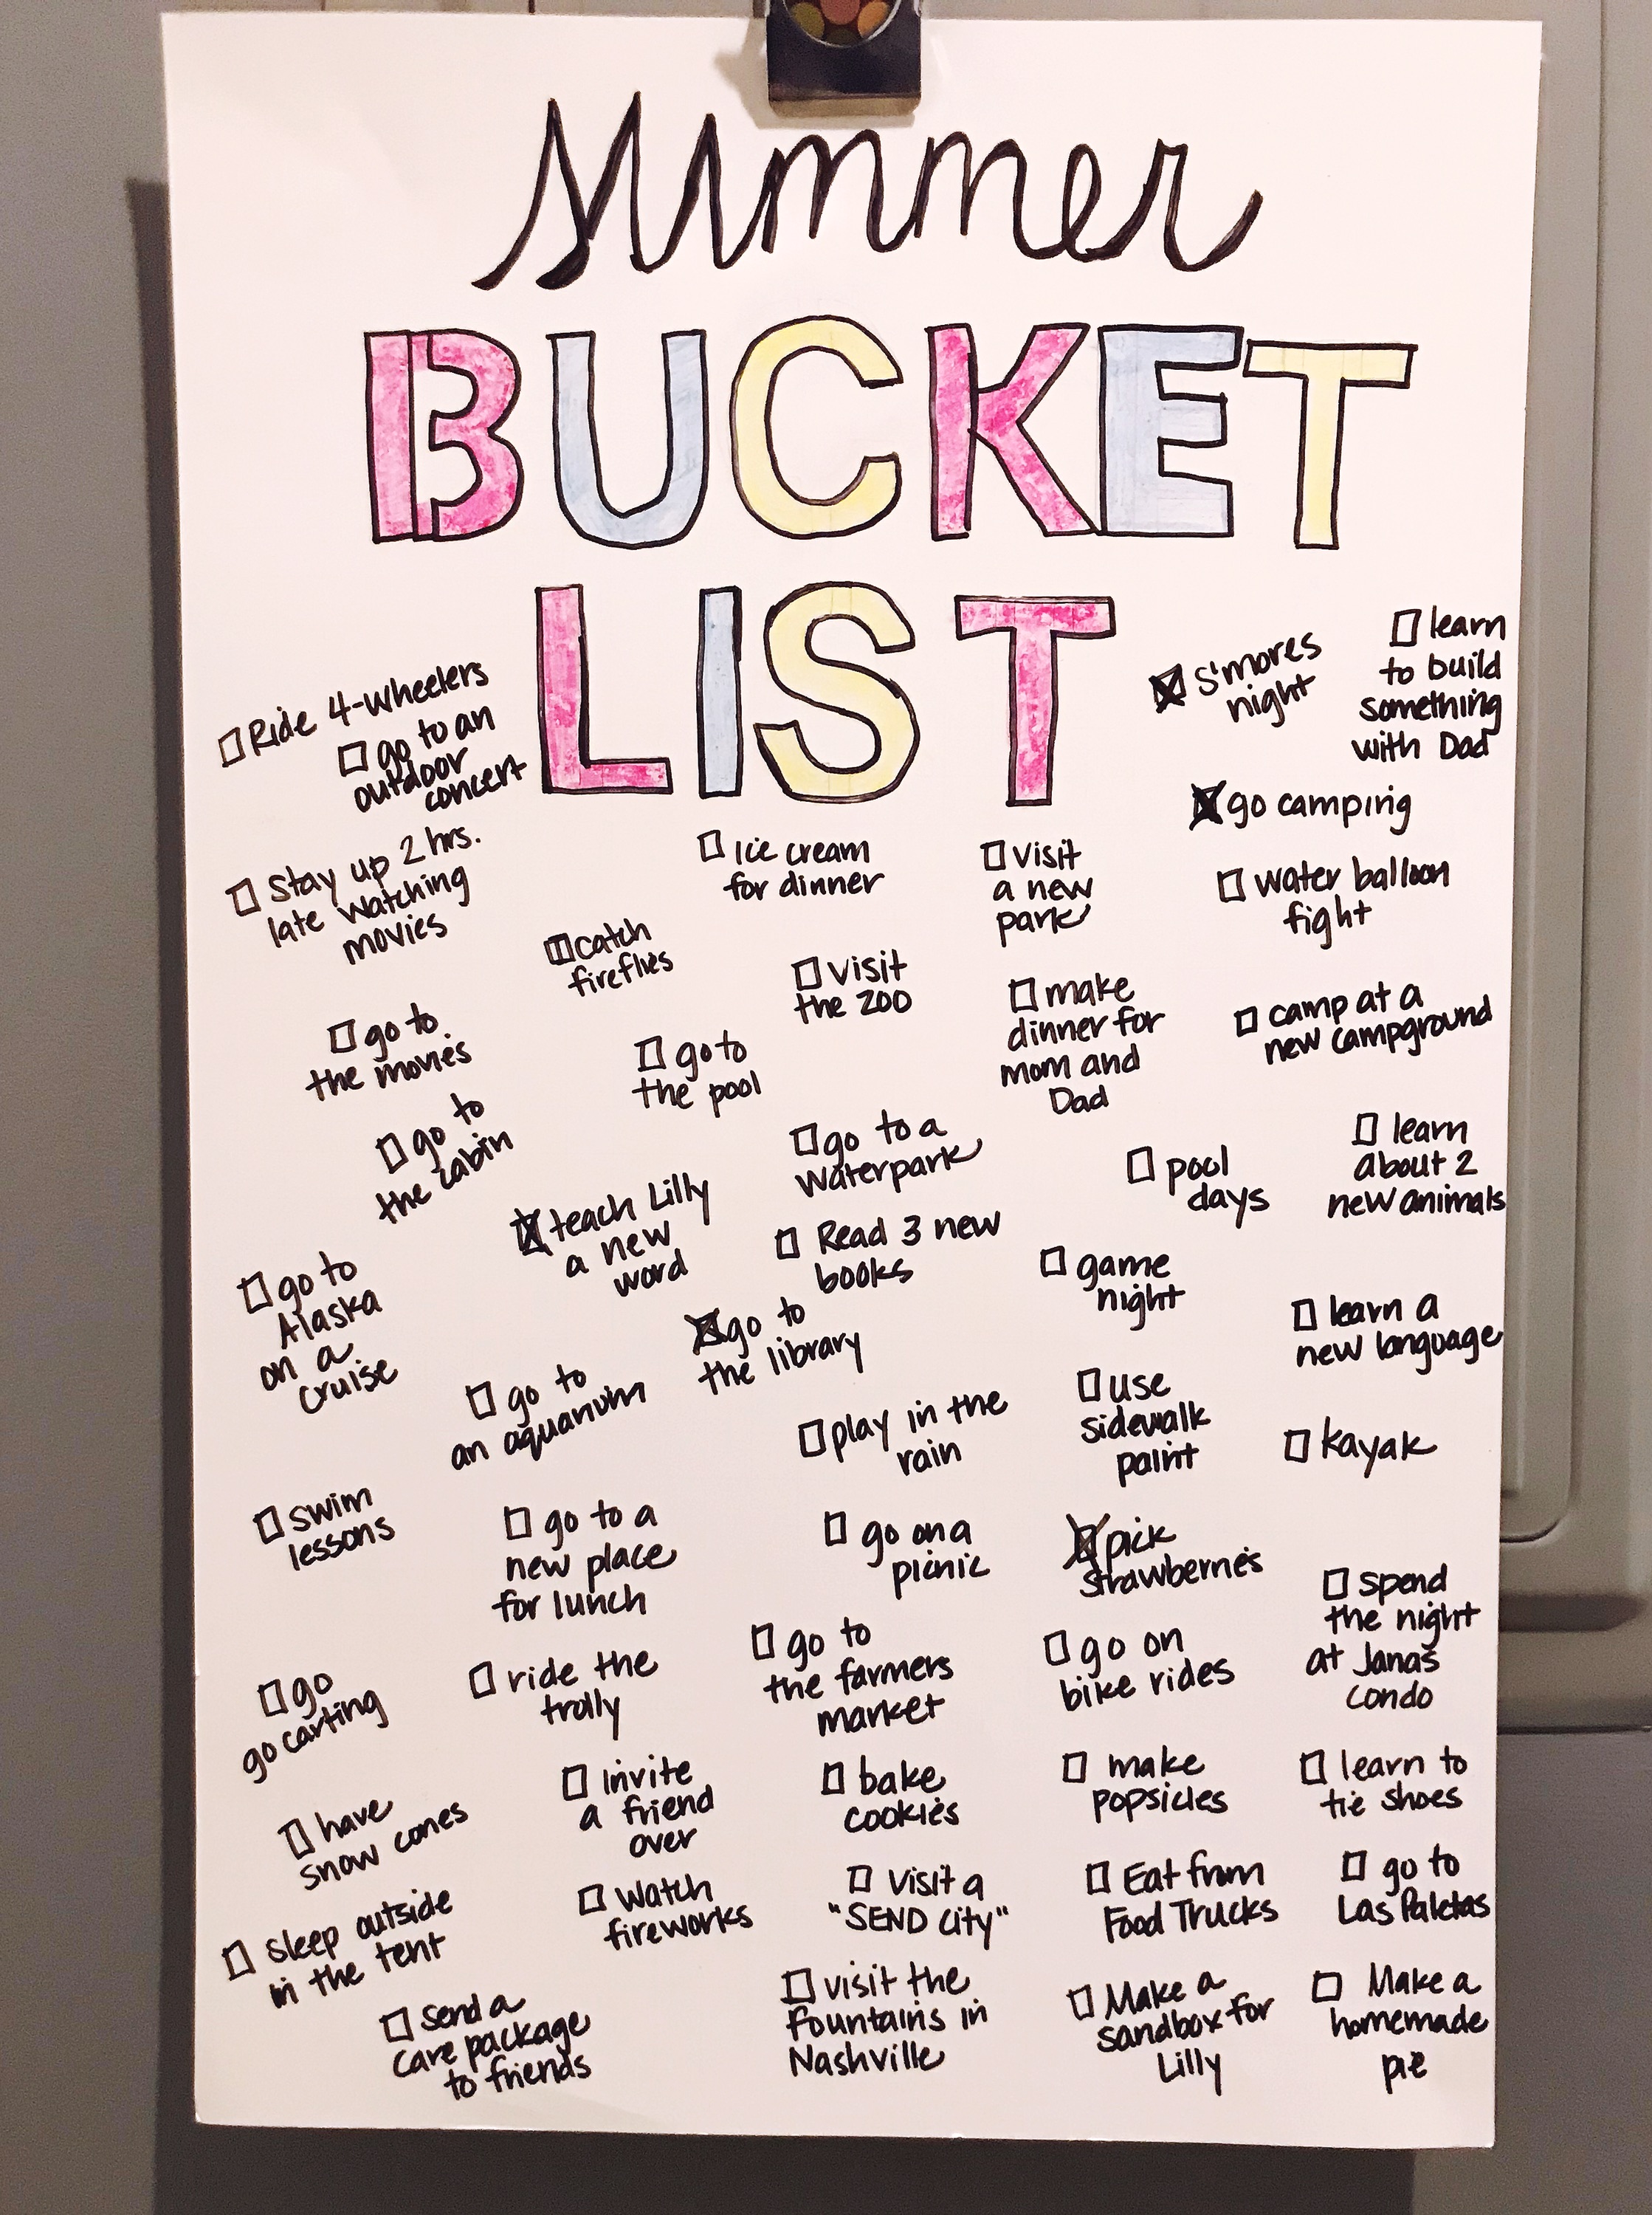 Summer
BUCKET
LIST
Ride 4-wheelers
go to an
outdoor
concert
Stay up 2 hrs.
late watching
movies
go to
the movies
go to
the cabin
go to
Alaska
on a
cruise
swim
lessons
go
go carting
have
snow cones
sleep outside
in the tent
send a
care package
to friends
catch
fireflies
go to
the pool
teach Lilly
a new
word
go to
an aquarium
go to a
new place
for lunch
ride the
trolly
invite
a friend
over
watch
fireworks
Ice cream
for dinner
visit
the zoo
go to a
waterpark
Read 3 new
books
go to
the library
play in the
rain
go on a
picnic
go to
the farmers
market
bake
cookies
visit a
"SEND city"
visit the
fountains in
Nashville
visit
a new
park
make
dinner for
mom and
Dad
pool
days
game
night
use
sidewalk
paint
pick
strawberries
go on
bike rides
make
popsicles
Eat from
Food Trucks
Make a
sandbox for
Lilly
S'mores
night
learn
to build
something
with Dad
go camping
water balloon
fight
camp at a
new campground
learn
about 2
new animals
learn a
new language
kayak
spend
the night
at Jana's
condo
learn to
tie shoes
go to
Las Paletas
Make a
homemade
pie